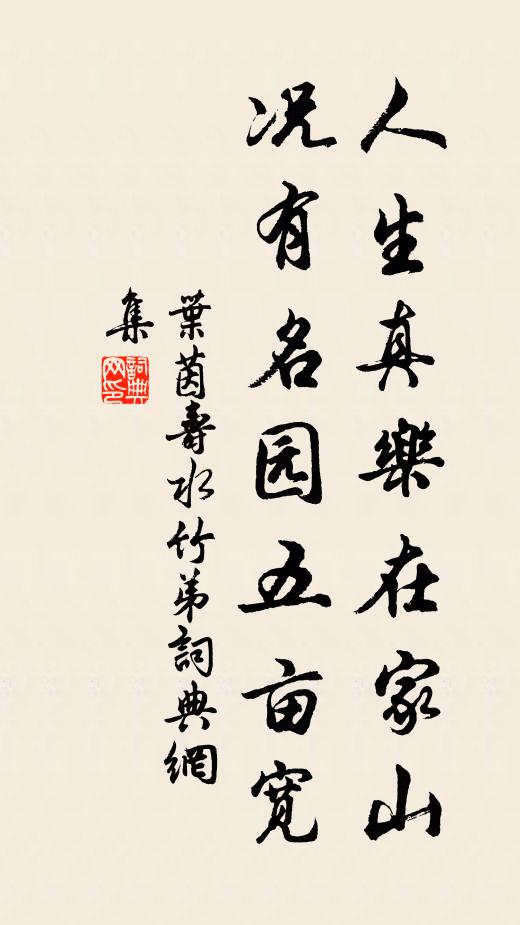 人生真樂在家山
况有名园五亩宽
葉茵壽水竹弟詞典網
集
詞典
网印